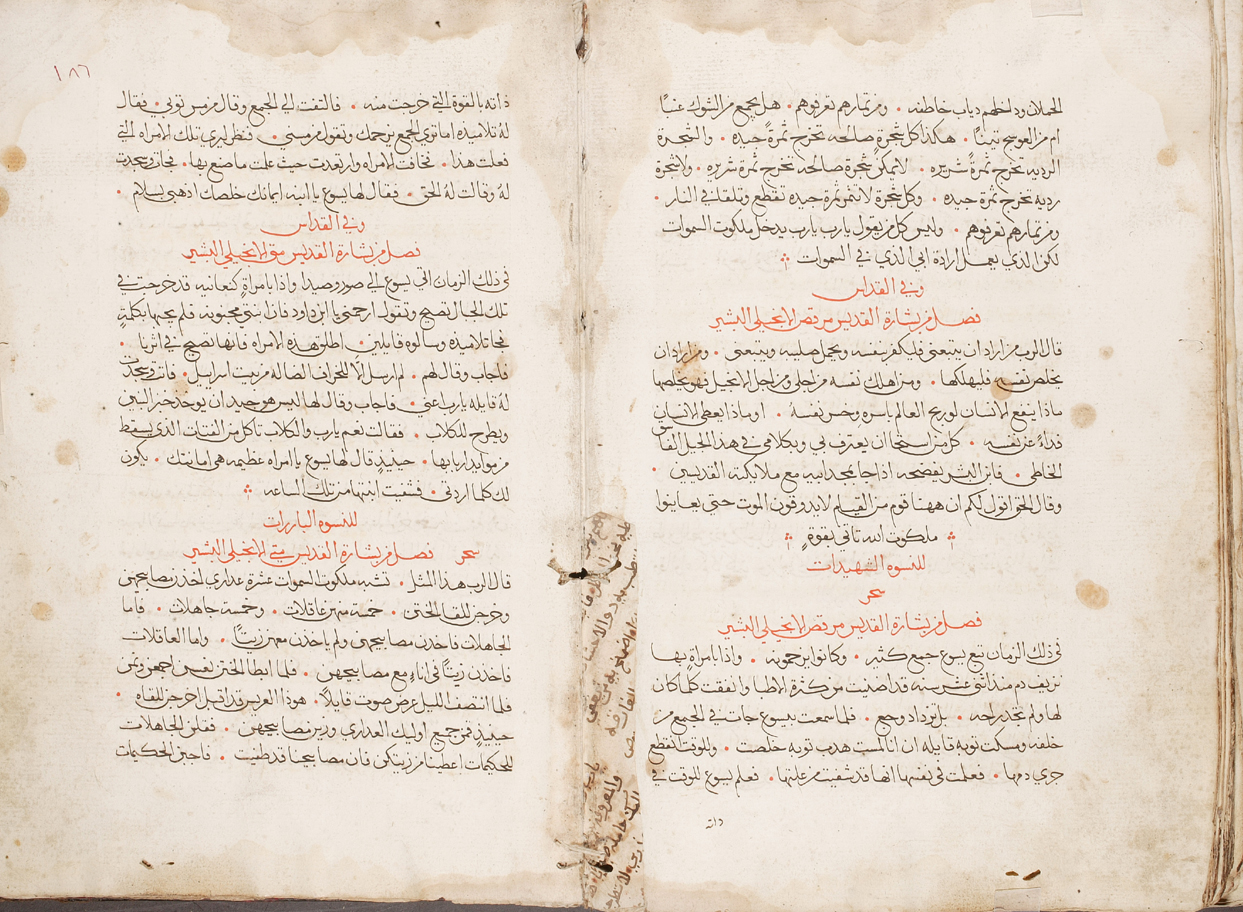 الحملان وداخلهم دياب خاطفه • ومن تمارهم تعرفوهم • هل يجمع من الشوك عنبًا
ام من العوسج تينًا • هكذا كل شجرةٍ صالحه تخرج ثمرةً جيده • والشجرة
الرديه تخرج ثمرةً شريره • لا تمكن شجرة صالحه تخرج ثمرة شريره • ولا شجرة
رديه تخرج ثمرة جيده • وكل شجرة لا تثمر ثمرة جيده تقطع وتلقا في النار •
ومن تمارهم تعرفوهم • وليس كل من يقول يارب يارب يدخل ملكوت السموات
لكن الذي يعمل ارادة ابي الذي في السموات
وفي القداس
فصل من بشارة القديس مرقص الانجيلي البشير
قال الرب من اراد ان يتبعني فليكفر بنفسه ويحمل صليبه ويتبعني • ومن اراد ان
يخلص نفسه فليهلكها • ومن اهلك نفسه من اجلي ومن اجل الانجيل فهو يخلصها
ماذا ينفع الانسان لو ربح العالم باسره وخسر نفسه • او ماذا يعطي الانسان
فداءً عن نفسه • كل من استحا ان يعترف بي وبكلامي في هذا الجيل الفاسق
الخاطي • فابن البشر يفضحه اذا جا بمجد ابيه مع ملايكته القديسين •
وقال الحق اقول لكم ان ههنا قوم من القيام لا يدوقون الموت حتي يعاينوا
ملكوت الله تاتي بقوةٍ
للنسوه الشهيدات
سحر
فصل من بشارة القديس مرقص الانجيلي البشير
في ذلك الزمان تبع يسوع جمع كثير • وكانوا يزحمونه • واذا بامراةٍ بها
نزيف دم منذ اثني عشر سنه قد اضنيت من كثرة الاطبا وانفقت كلما كان
لها ولم تجد راحه • بل تزداد وجع • فلما سمعت بيسوع جات في الجمع من
خلفه ومسكت توبه قايله ان انا لمست هدب توبه خلصت • وللوقت انقطع
جري دمها • فعلمت في نفسها انها قد شفيت من علتها • فعلم يسوع للوقت في
داته
١٨٦
ذاته بالقوة التي خرجت منه • فالتفت الي الجمع وقال من مس توبي • فقال
له تلاميذه اما تري الجمع يزحمك وتقول من مسني • فنظر ليري تلك الامراه التي
فعلت هذا • فخافت الامراه وارتعدت حيث علمت ما صنع بها • فجات وسجدت
له وقالت له الحق • فقال لها يسوع يا ابنه ايمانك خلصك اذهبي بسلام •
وفي القداس
فصل من بشارة القديس متي الانجيلي البشير
في ذلك الزمان اتي يسوع الي صور وصيدا واذا بامراةٍ كنعانيه قد خرجت في
تلك الجبال تصيح وتقول ارحمني يا ابن داود فان بنتي مجنونه فلم يجبها بكلمةٍ
فجا تلاميذه وسالوه قايلين • اطلق هذه الامراه فانها تصيح في اثرنا •
فاجاب وقال لهم • لم ارسل الا للخراف الضاله من بيت اسراييل • فاتت وسجدت
له قايله يارب اعني • فاجاب وقال لها ليس هو جيد ان يوخذ خبز البنين
ويطرح للكلاب • فقالت نعم يارب والكلاب تاكل من الفتات الذي يسقط
من موايد اربابها • حينيذٍ قال لها يسوع يا امراه عظيمه هي امانتك • يكون
لك كلما اردتي • فشفيت ابنتها من تلك الساعه
للنسوه البارات
سحر فصل من بشارة القديس متي الانجيلي البشير
قال الرب هذا المثل • تشبه ملكوت السموات عشرة عداري اخذن مصابيحهن
وخرجن للقا الختن • خمسة منهن عاقلات • وخمسة جاهلات • فاما
الجاهلات فاخذن مصابيحهن ولم ياخذن معهن زيتًا • واما العاقلات
فاخذن زيتًا في اناءٍ مع مصابيحهن • فلما ابطا الختن نعسن اجمعهن ونمن
فلما انتصف الليل عرض صوت قايلاً • هوذا العريس قد اقبل اخرجن للقاه •
حينيذٍ قمن جميع اوليك العداري وزين مصابيحهن • فقلن الجاهلات
للحكيمات اعطينا من زيتكن فان مصابيحنا قد طفيت • فاجبن الحكيمات